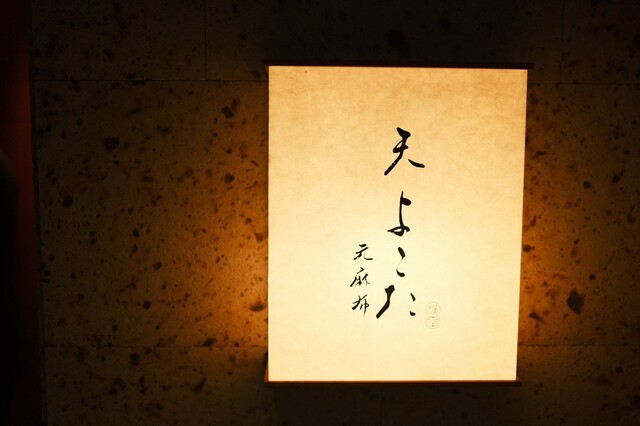 天よこた
元麻布